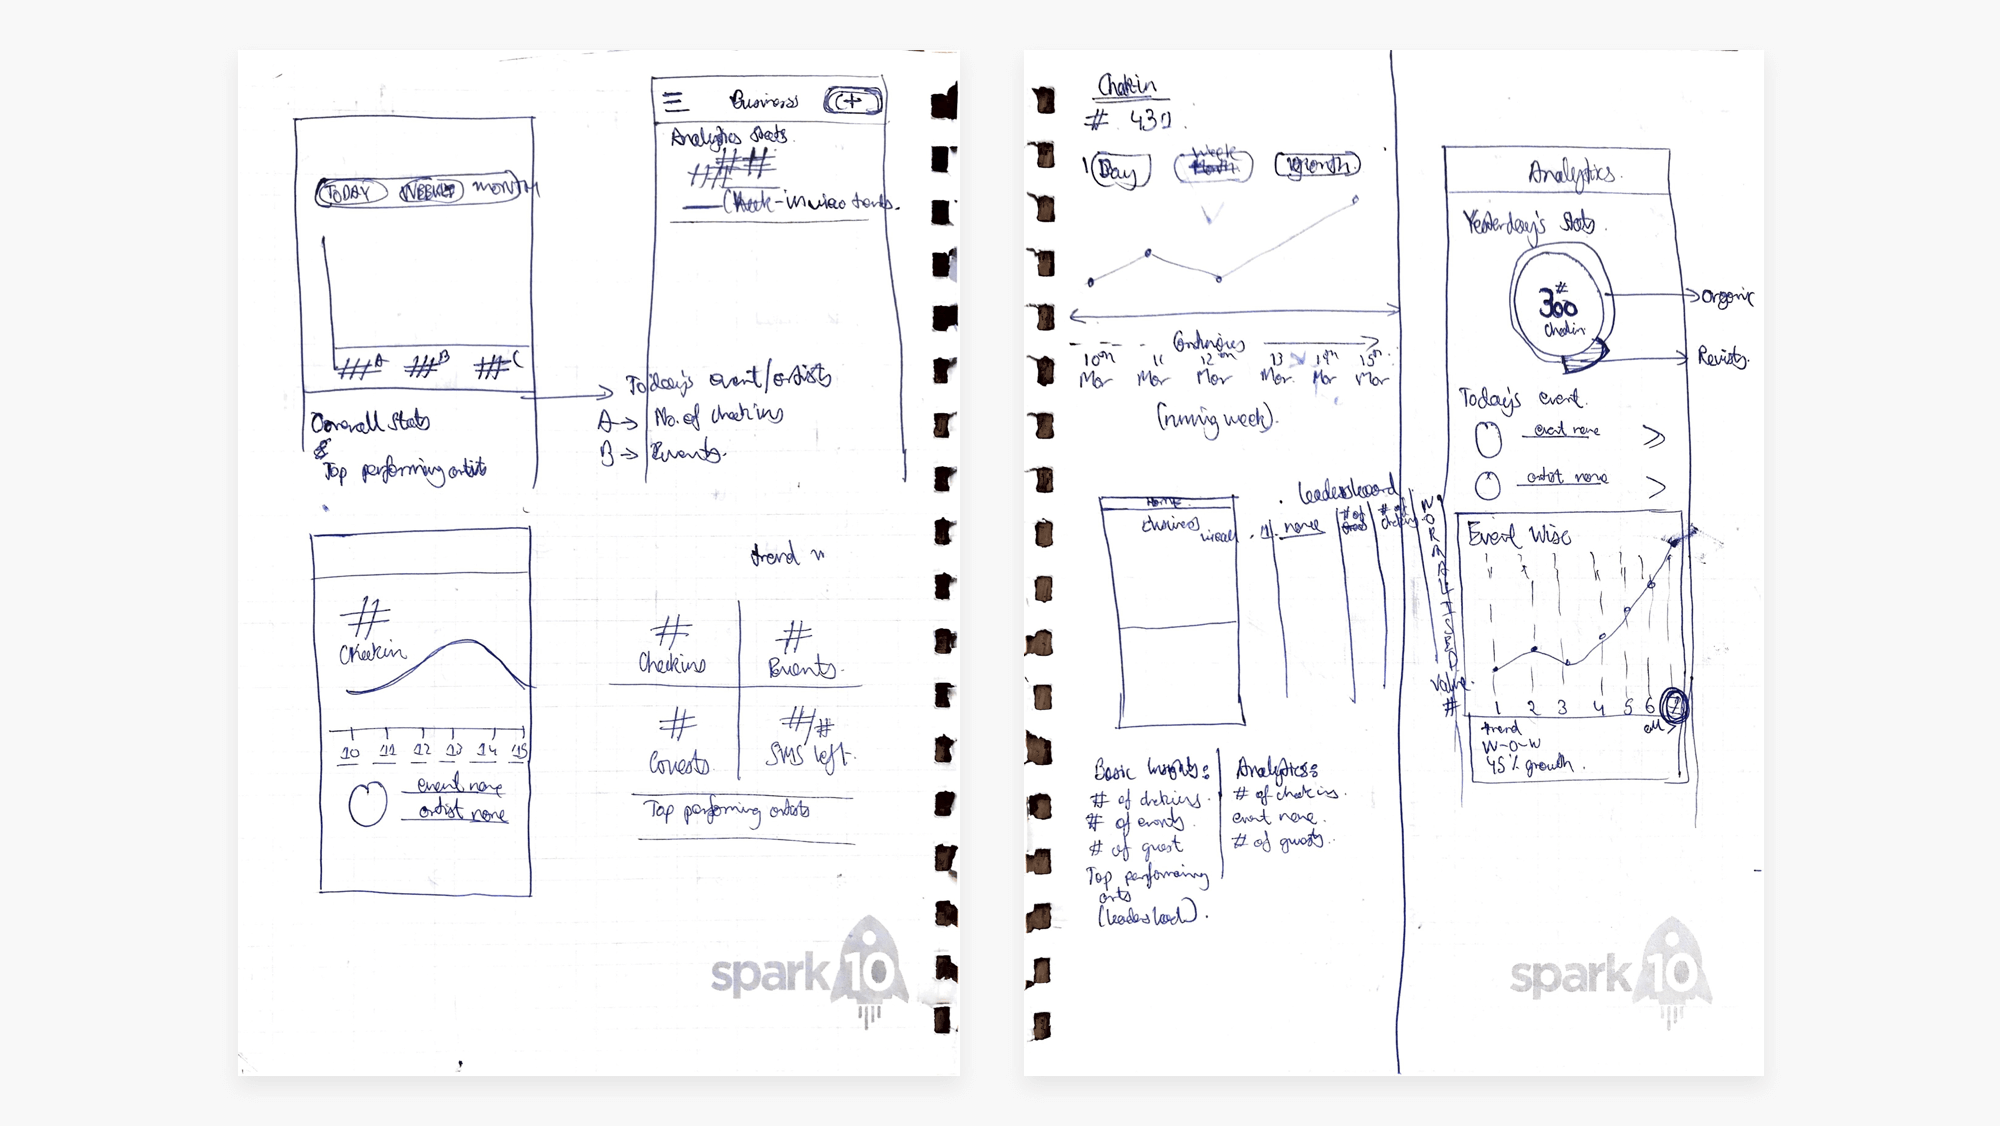 TODAY WEEKLY MONTH
# A # B # C
Overall stats
&
Top performing artists
Business (+
Analytics stats
# #
#
Today's event/artists
A → No. of checkins
B → Events.
#
Checkin
10 11 12 13 14 15
event name
artist name
trend
# Checkins
# Events.
# Guests
#/# SMS left.
Top performing artists
spark10
Checkin
# 431.
Day Week Month
10th Mar 11 Mar 12th Mar 13 Mar 14th Mar 15th Mar
(running week).
Home
Business
leaderboard
1. name # of # of checkins
Basic Insights:
# of checkins.
# of events.
# of guest
Top performing
arts
(leaderboard).
Analytics:
# of checkins.
event name.
# of guests.
Analytics.
Yesterday's stats.
# 300
Checkin
Organic
Revisits.
Today's event.
event name >
artist name >
Event Wise
NORMALISED
Value
#
1 2 3 4 5 6 7
trend
W-O-W
45% growth.
spark10